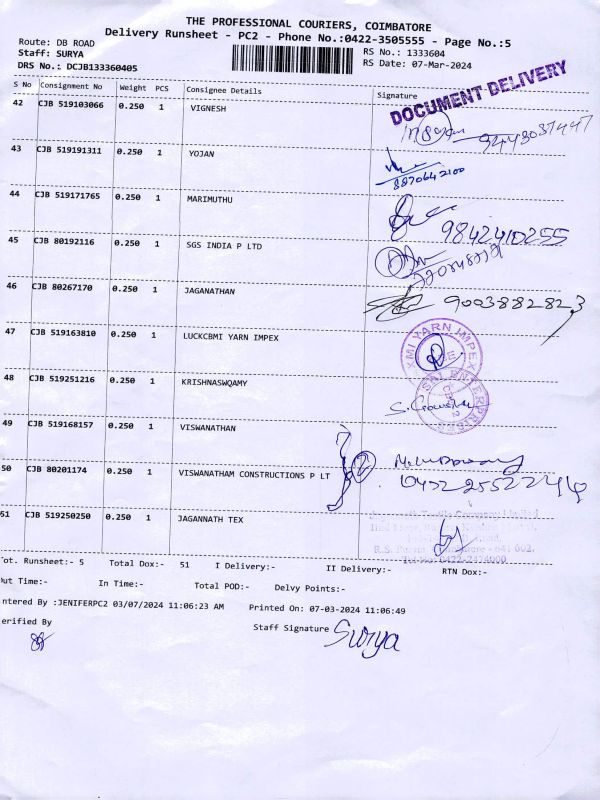 THE PROFESSIONAL COURIERS, COIMBATORE
Delivery Runsheet - PC2 - Phone No.:0422-3505555 - Page No.:5
Route: DB ROAD RS No.: 1333604
Staff: SURYA RS Date: 07-Mar-2024
DRS No.: DCJB133360405
S No Consignment No Weight PCS Consignee Details Signature
DOCUMENT DELIVERY
42 CJB 519103066 0.250 1 VIGNESH
43 CJB 519191311 0.250 1 YOJAN
8870642100
44 CJB 519171765 0.250 1 MARIMUTHU
9842410255
45 CJB 80192116 0.250 1 SGS INDIA P LTD
46 CJB 80267170 0.250 1 JAGANATHAN
9003882823
47 CJB 519163810 0.250 1 LUCKCBMI YARN IMPEX
XMI YARN IMPEX
48 CJB 519251216 0.250 1 KRISHNASWQAMY
49 CJB 519168157 0.250 1 VISWANATHAN
50 CJB 80201174 0.250 1 VISWANATHAM CONSTRUCTIONS P LT
51 CJB 519250250 0.250 1 JAGANNATH TEX
ot. Runsheet:- 5 Total Dox:- 51 I Delivery:- II Delivery:- RTN Dox:-
ut Time:- In Time:- Total POD:- Delvy Points:-
ntered By :JENIFERPC2 03/07/2024 11:06:23 AM Printed On: 07-03-2024 11:06:49
erified By Staff Signature Surya